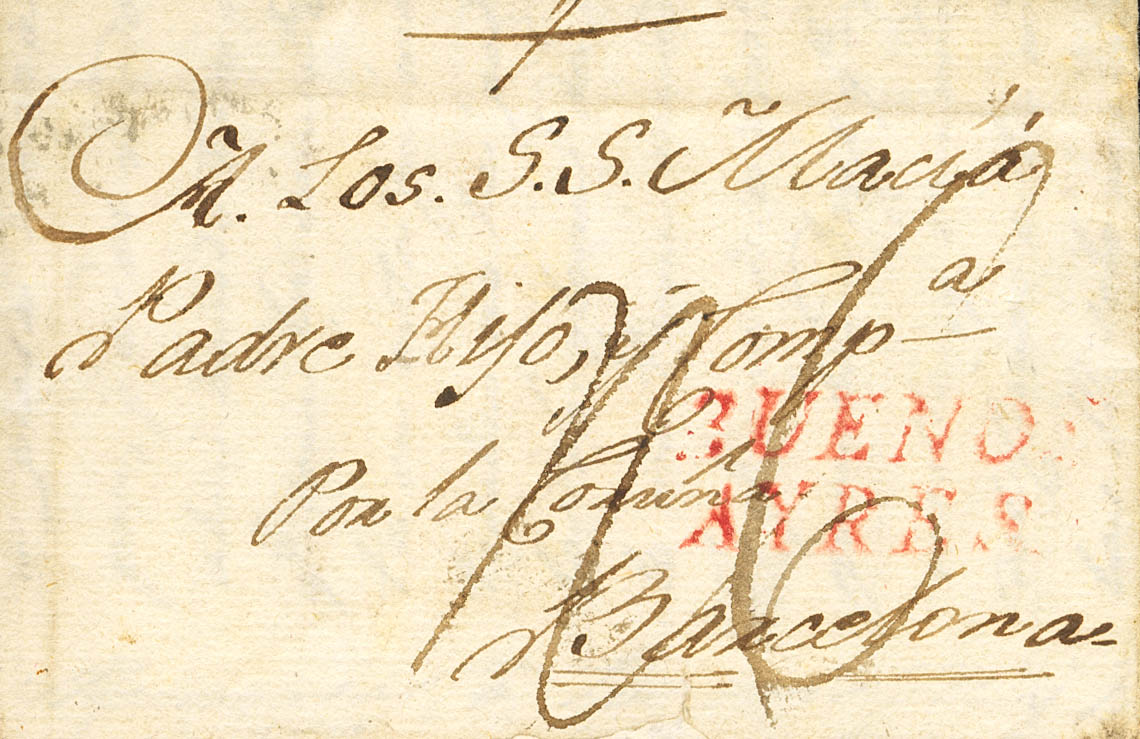 A. Los. S.S. Maciá
Padre Hijo, y Comp.ª
Por la Coruña
BUENOS
AYRES
Barcelona